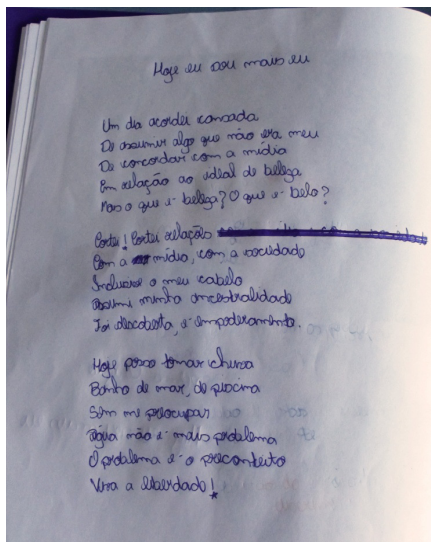 Hoje eu sou mais eu
Um dia acordei cansada
De assumir algo que não era meu
De concordar com a mídia
Em relação ao ideal de beleza
Mas o que é beleza? O que é belo?
Cortei! Cortei relações
Com a mídia, com a sociedade
Inclusive o meu cabelo
Assumi minha ancestralidade
Foi descoberta, é empoderamento.
Hoje posso tomar chuva
Banho de mar, de piscina
Sem me preocupar
Água não é mais problema
O problema é o preconceito
Viva a liberdade!